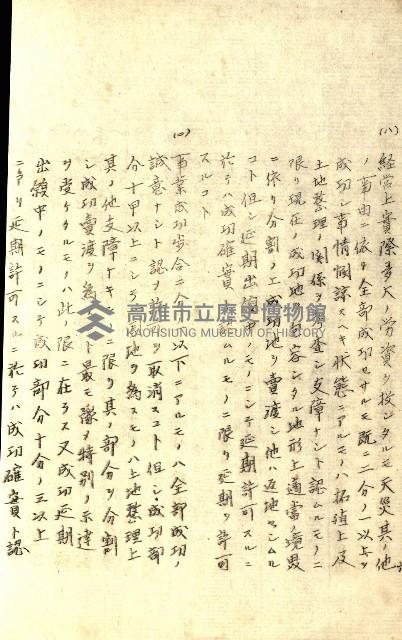 (ハ)
経営上實際多大ノ労資ヲ投シタルモ天災其ノ他
ノ事由ニ依リ全部成功セサルモ既ニ二分ノ一以上ヲ
成功シ事情憫諒スヘキ状態ニアルモノハ拓殖上及
土地整理ノ関係ヲ査シ支障ナシト認ムルモノニ
限リ現在ノ成功地ヲ容シタル地形上適當ノ境界
ニ依リ分割ノ上成功地ヲ賣渡シ他ハ返地セシムル
コト但シ延期出願中ノモノニシテ延期許可スルニ
於テハ成功確實ト認ムルモノニ限リ延期ヲ許可
スルコト
(ロ)
事業成功歩合二分ノ一以下ニアルモノハ全部成功ノ
誠意ナシト認メ許可ヲ取消スコト但シ成功部
分十甲以上ニシテ地ヲ為スモノハ土地整理上
其ノ他支障ナキモノニ限リ其ノ部分ヲ分割
シ成功賣渡ヲ為スコト最モ豫メ特別ノ示達
ヲ受ケタルモノハ此ノ限ニ在ラス又成功延期
出願中ノモノニシテ成功部分十分ノ三以上
ニ至リ延期許可スルニ於テハ成功確實ト認
高雄市立歷史博物館
KAOHSIUNG MUSEUM OF HISTORY